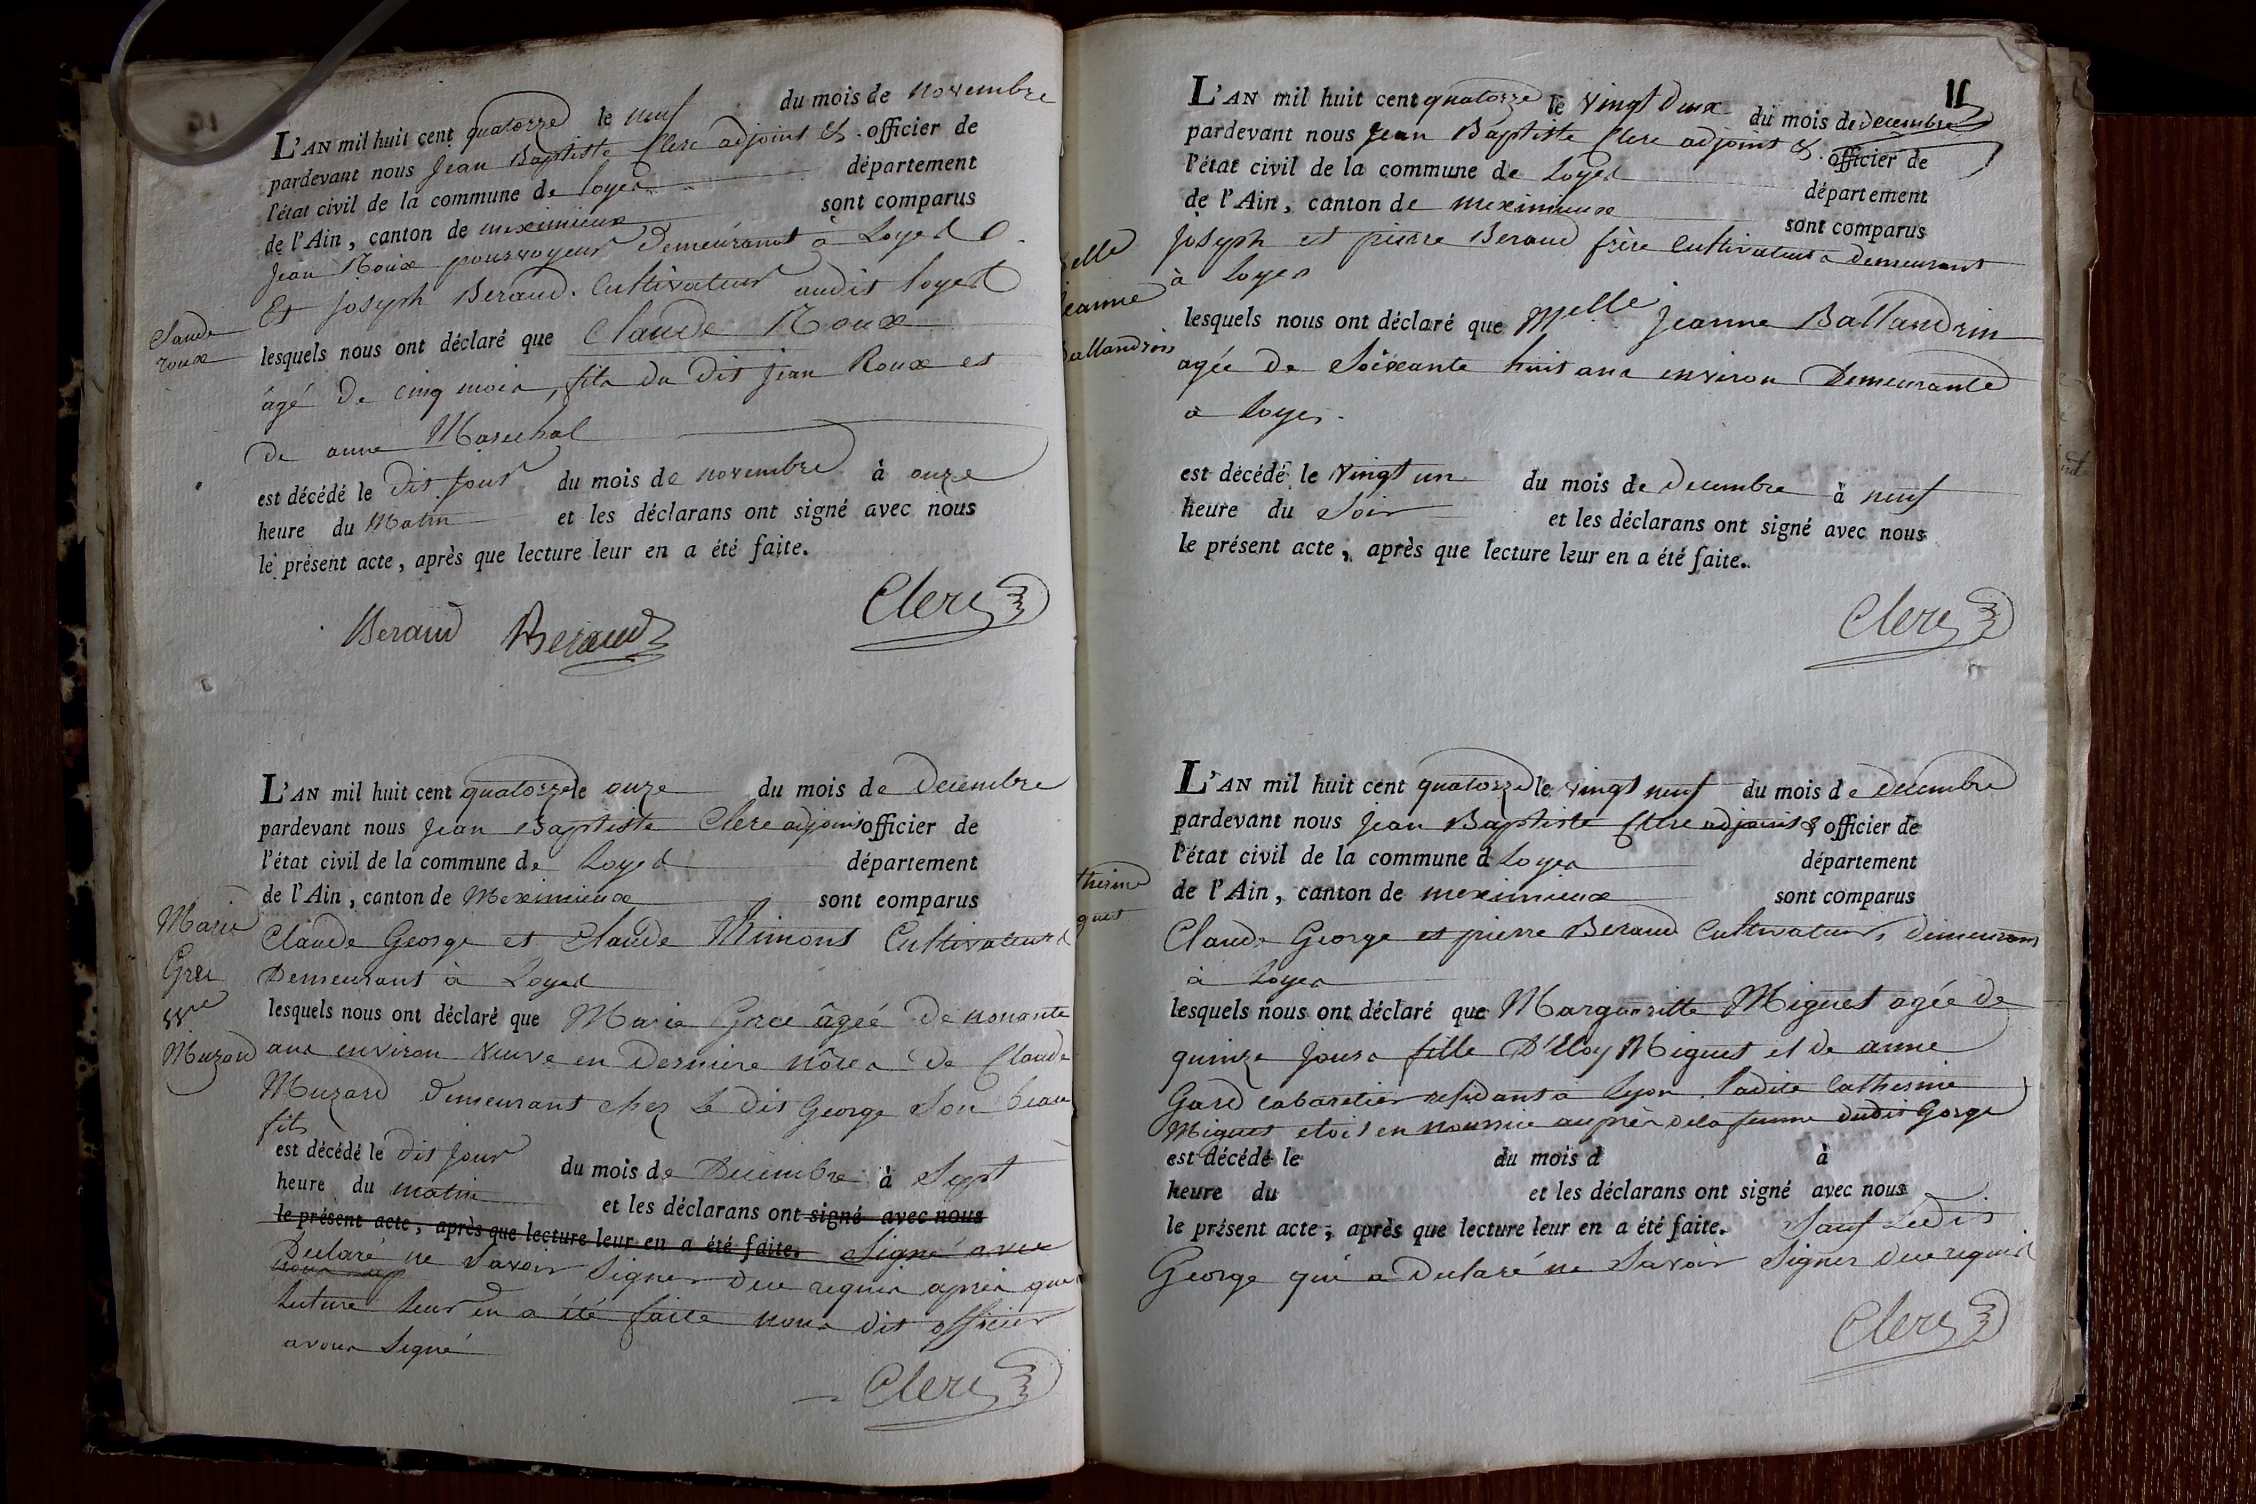 L'AN mil huit cent quatorze le neuf du mois de novembre
pardevant nous Jean Baptiste Clerc adjoint & officier de
l'état civil de la commune de loyes département
de l'Ain, canton de meximieux sont comparus
Jean Roux pourvoyeur Demeurant à Loyes
Et Joseph Beraud Cultivateur audit loyes
Claude
roux
lesquels nous ont déclaré que Claude Roux
âgé De cinq mois, fils du dit jean Roux et
de anne Marechal
est décédé le dit jour du mois de novembre à onze
heure du Matin et les déclarans ont signé avec nous
le présent acte, après que lecture leur en a été faite.
Beraud Beraud Clerc
L'AN mil huit cent quatorze le onze du mois de Decembre
pardevant nous Jean Baptiste Clerc adjoint officier de
l'état civil de la commune de Loyes département
de l'Ain, canton de Meximieux sont comparus
Marie
Gree
vve
Muzard
Claude George et Claude Mimont Cultivateurs
Demeurant à Loyes
lesquels nous ont déclaré que Marie Gree âgée De nonante
ans environ veuve en Derniere nôces De Claude
Muzard Demeurant chez Le Dit George Son beau
fils
est décédé le dit jour du mois de Decembre à Sept
heure du matin et les déclarans ont signé avec nous
le présent acte, après que lecture leur en a été faite. Signé avec
Declaré ne Savoir Signer Dece requis après que
lecture leur en a été faite nous dit officier
avons Signé
Clerc
11
L'AN mil huit cent quatorze le vingt Deux du mois de Decembre
pardevant nous Jean Baptiste Clerc adjoint & officier de
l'état civil de la commune de Loyes département
de l'Ain, canton de meximieux sont comparus
Joseph et pierre Beraud frère Cultivateurs Demeurant
à Loyes
elle
jeanne
Ballandrin
lesquels nous ont déclaré que Melle Jeanne Ballandrin
agée De Soixante huit ans environ Demeurante
à Loyes.
est décédé le vingt un du mois de Decembre à neuf
heure du Soir et les déclarans ont signé avec nous
le présent acte, après que lecture leur en a été faite.
Clerc
L'AN mil huit cent quatorze le vingt neuf du mois de Decembre
pardevant nous Jean Baptiste Clerc adjoint & officier de
l'état civil de la commune d Loyes département
de l'Ain, canton de meximieux sont comparus
therine
guet
Claude George et pierre Beraud Cultivateurs, Demeurans
à Loyes
lesquels nous ont déclaré que Margueritte Miguet agée De
quinze jours fille D'Eloy Miguet et de anne
Gard cabaretier residant a Lyon. Ladite Catherine
Miguet etoit en nourrice auprès de la femme dudit Gorge
est décédé le du mois d à
heure du et les déclarans ont signé avec nous
le présent acte, après que lecture leur en a été faite. Sauf Ledit
George qui a Declaré ne Savoir Signer Dece requis
Clerc